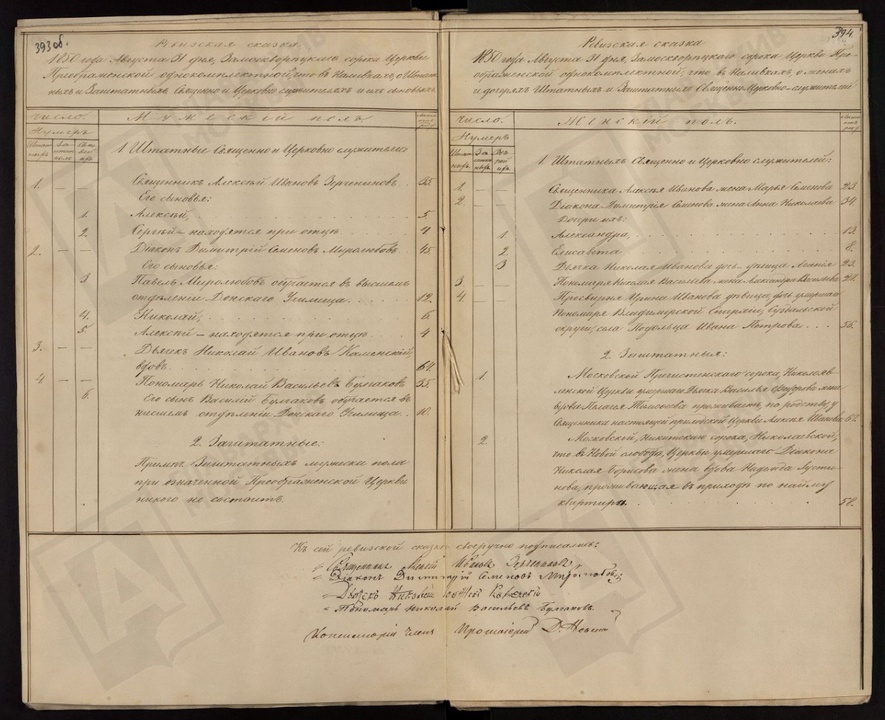 393 об.
Ревизская сказка
1850 года Августа 31 дня, Замоскворецкаго сорока Церкви
Преображенской однокомплектной, что въ Наливкахъ, о Штат-
ныхъ и Заштатныхъ Священно и Церковно служителяхъ и ихъ сыновьяхъ
Число.
Мужескій полъ
Нумеръ
1 Штатные Священно и Церковно служители
1. Священникъ Алексѣй Ивановъ 35
Его сыновья:
1. Алексѣй, 5
2. Сергѣй – находятся при отцѣ 4
2. Діаконъ Димитрій Семеновъ Миролюбовъ 45
Его сыновья:
3 Павелъ Миролюбовъ обучается въ высшемъ
отдѣленіи Донскаго Училища 12
4. Николай, 6
5. Алексѣй – находятся при отцѣ 4
3. Дьячекъ Николай Ивановъ Каменскій,
вдовъ 64
4 Пономарь Николай Васильевъ Бумаковъ 35
6. Его сынъ Василій Бумаковъ обучается въ
низшемъ отдѣленіи Донскаго Училища 10
2. Заштатные:
Примѣч. Заштатныхъ мужеска пола
при означенной Преображенской Церкви
никого не состоитъ
394
Ревизская сказка
1850 года Августа 31 дня, Замоскворецкаго сорока Церкви Пре-
ображенской однокомплектной, что въ Наливкахъ, о женахъ
и дочеряхъ Штатныхъ и Заштатныхъ Священно Церковно-служителей
Число.
Женскій полъ.
Нумеръ
1 Штатныхъ Священно и Церковно служителей:
1. Священника Алексѣя Иванова жена Марья Семенова 23
2. Діакона Димитрія Семенова жена Анна Николаева 34
Дочери ихъ:
1 Александра, 13
2 Елисавета 8
3 Дьячка Николая Иванова дочь – дѣвица 23
3. Пономаря Николая Васильева жена Александра Васильева
4 Просвирня Арина Иванова дѣвица, дочь умершаго
Пономаря Владимірской Епархіи, Суздальской
округи, села Подольца Ивана Петрова 56
2. Заштатныя:
1. Московской Пречистенскаго сорока, Николаев-
ской Церкви умершаго Дьячка Василья жена
вдова Пелагея Тимофеева проживаетъ, по родству у
Священника настоящей приходской Церкви Алексѣя Иванова 62
2. Московской, Никитскаго сорока, Николаевской,
что въ Новой слободѣ, Церкви умершаго Діакона
Николая Борисова жена вдова Надежда Густи-
нова, проживающая въ приходѣ по найму
квартиры 58
Къ сей ревизской сказкѣ своеручно подписались:
Священникъ Алексѣй Ивановъ
Діаконъ Димитрій Семеновъ Миролюбовъ
Дьячекъ Николай Каменскій
Пономарь Николай Васильевъ Бумаковъ
Консисторіи Членъ Протоіерей Д.